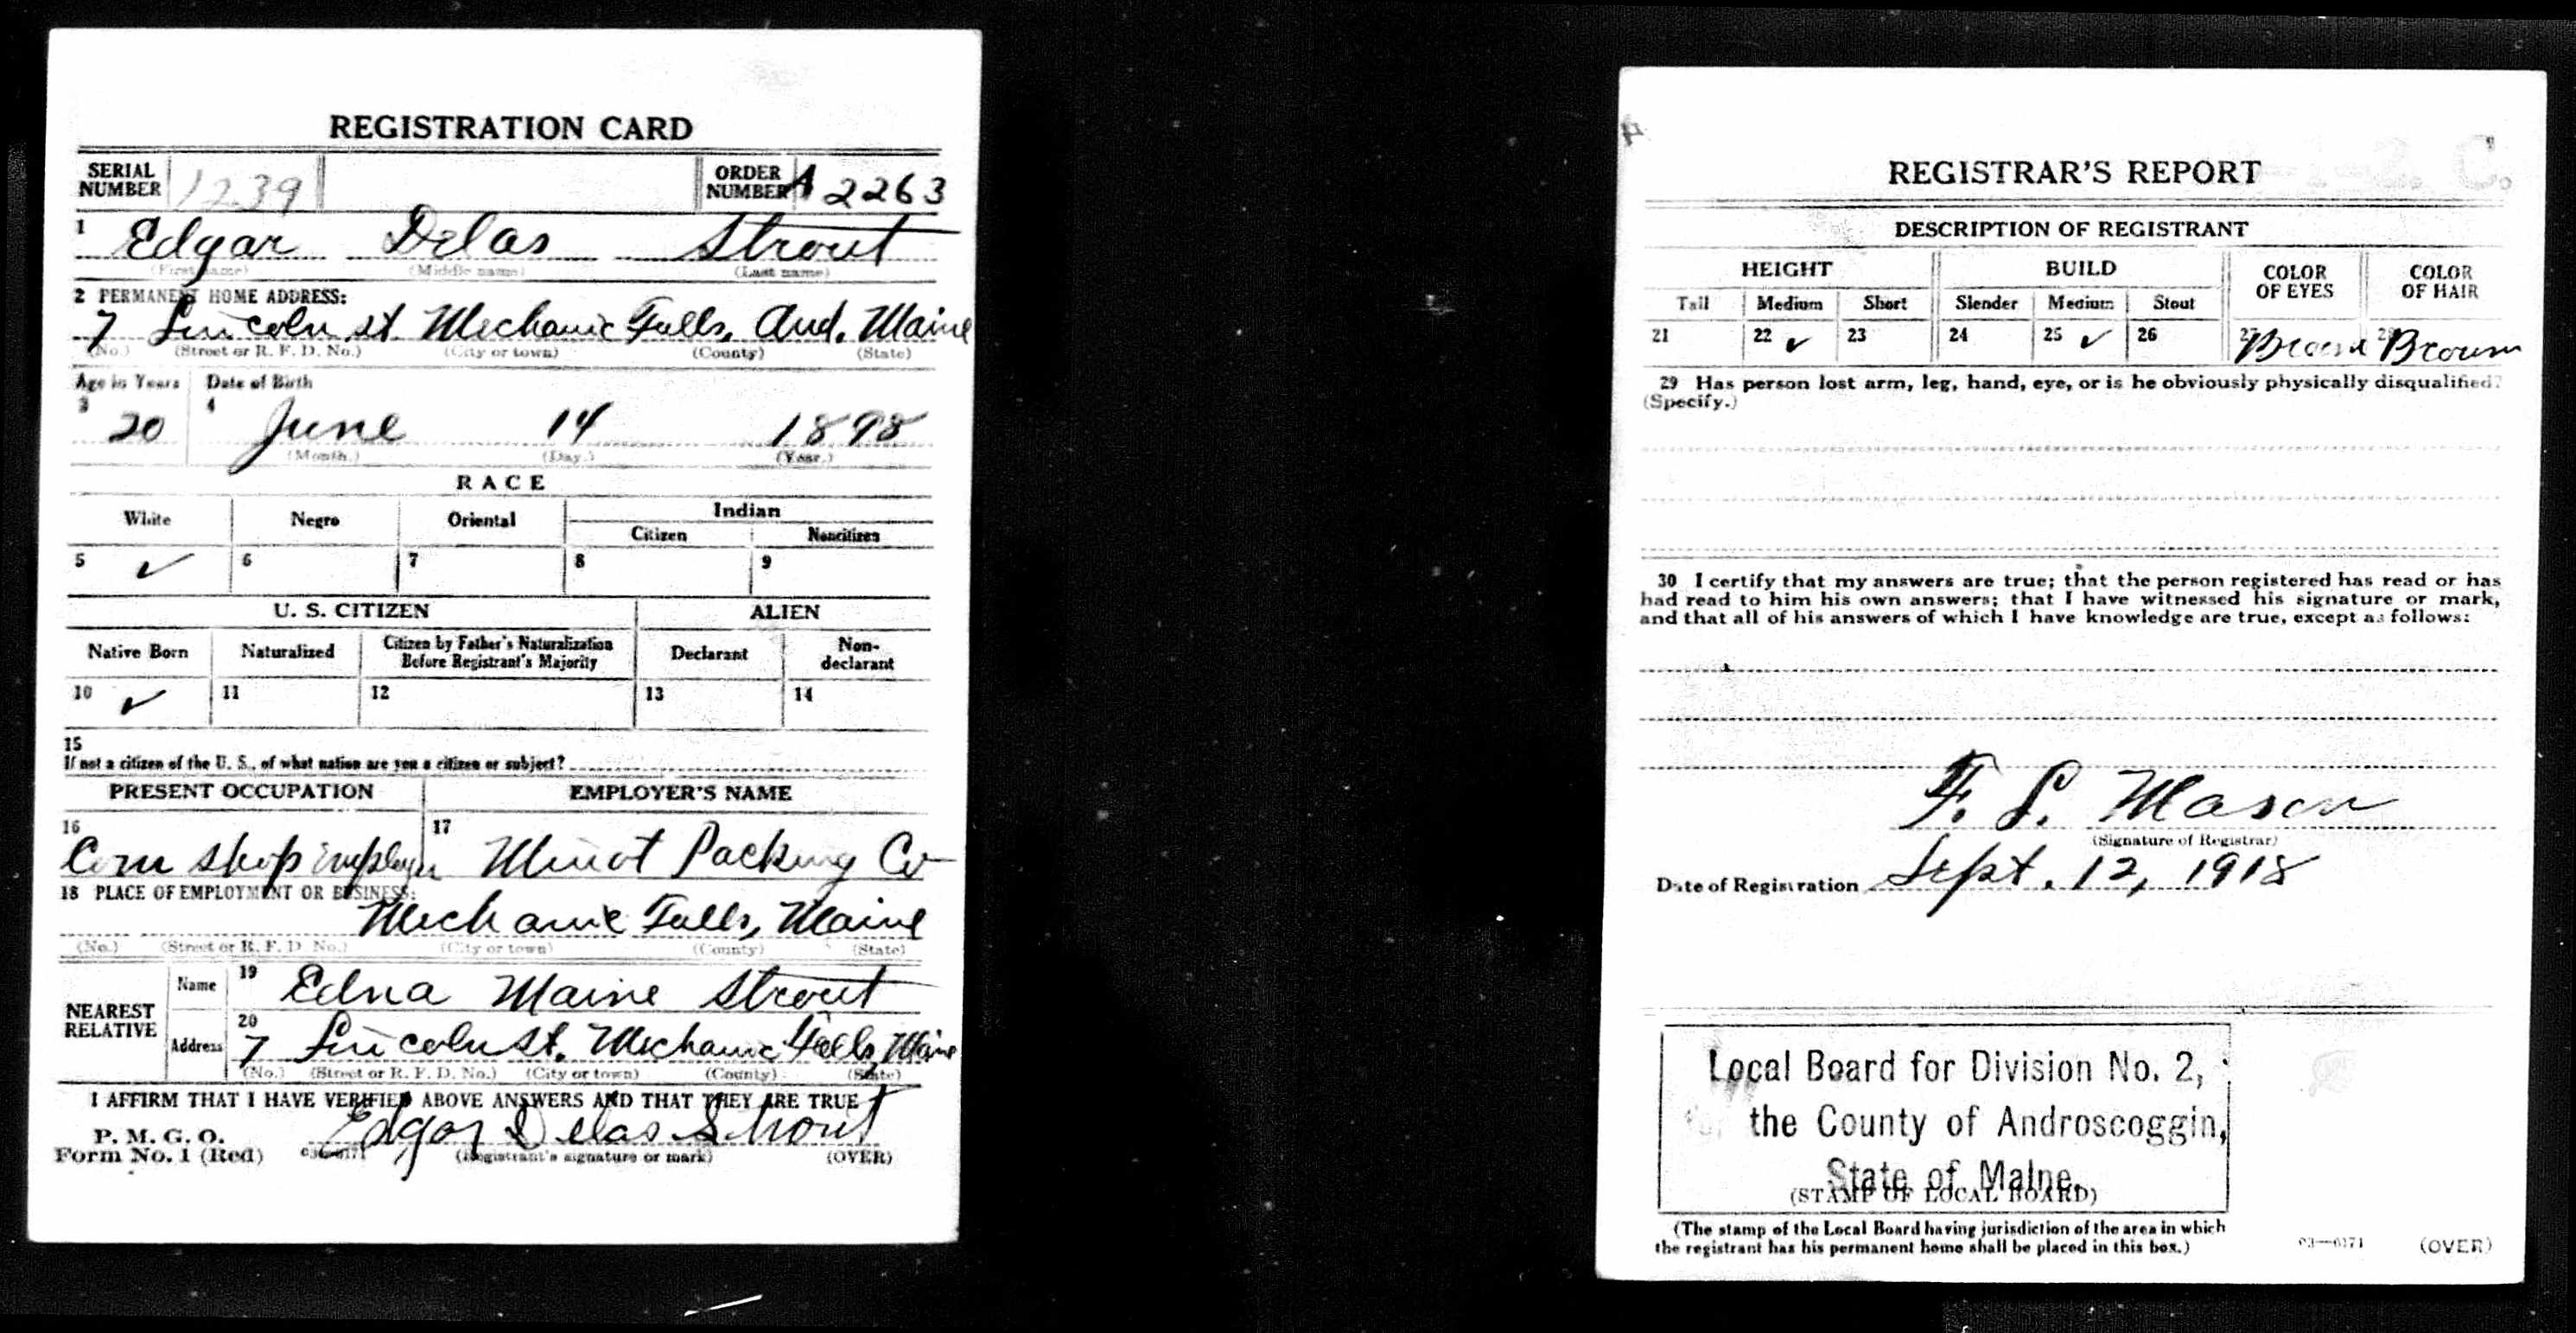 REGISTRATION CARD
SERIAL NUMBER 1239 ORDER NUMBER A 2263
1 Edgar Delas Strout
(First name) (Middle name) (Last name)
2 PERMANENT HOME ADDRESS:
7 Lincoln st. Mechanic Falls, And. Maine
(No.) (Street or R. F. D. No.) (City or town) (County) (State)
Age in Years Date of Birth
3 20 4 June 14 1898
(Month.) (Day.) (Year.)
RACE
White Negro Oriental Indian
Citizen Noncitizen
5 ✓ 6 7 8 9
U. S. CITIZEN ALIEN
Native Born Naturalized Citizen by Father's Naturalization Before Registrant's Majority Declarant Non-declarant
10 ✓ 11 12 13 14
15
If not a citizen of the U. S., of what nation are you a citizen or subject?
PRESENT OCCUPATION EMPLOYER'S NAME
16 Corn shop 17 Minot Packing Co
18 PLACE OF EMPLOYMENT OR BUSINESS:
Mechanic Falls, Maine
(No.) (Street or R. F. D. No.) (City or town) (County) (State)
NEAREST RELATIVE
Name 19 Edna Maine Strout
Address 20 7 Lincoln st. Mechanic Falls, Maine
(No.) (Street or R. F. D. No.) (City or town) (County) (State)
I AFFIRM THAT I HAVE VERIFIED ABOVE ANSWERS AND THAT THEY ARE TRUE
P. M. G. O.
Form No. 1 (Red) Edgar Delas Strout
(Registrant's signature or mark) (OVER)
REGISTRAR'S REPORT
DESCRIPTION OF REGISTRANT
HEIGHT BUILD COLOR OF EYES COLOR OF HAIR
Tall Medium Short Slender Medium Stout
21 22 ✓ 23 24 25 ✓ 26 27 Brown 28 Brown
29 Has person lost arm, leg, hand, eye, or is he obviously physically disqualified?
(Specify.)
30 I certify that my answers are true; that the person registered has read or has
had read to him his own answers; that I have witnessed his signature or mark,
and that all of his answers of which I have knowledge are true, except as follows:
F. L. Mason
(Signature of Registrar)
Date of Registration Sept. 12, 1918
Local Board for Division No. 2,
the County of Androscoggin,
State of Maine.
(STAMP OF LOCAL BOARD)
(The stamp of the Local Board having jurisdiction of the area in which
the registrant has his permanent home shall be placed in this box.)
03—6171 (OVER)